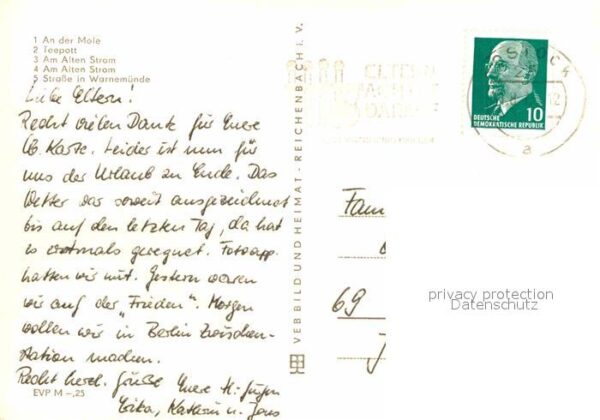 1 An der Mole
2 Teepott
3 Am Alten Strom
4 Am Alten Strom
5 Straße in Warnemünde
Liebe Eltern!
Recht vielen Dank für Eure
lb. Karte. Leider ist nun für
uns der Urlaub zu Ende. Das
Wetter war soweit ausgezeichnet
bis auf den letzten Tag, da hat
es erstmals geregnet. Fotoapp.
hatten wir mit. Gestern waren
wir auf der „Frieden“. Morgen
wollen wir in Berlin Zwischen-
station machen.
Recht herzl. Grüße Eure H.-Jürgen
Erika, Kathrin u. Jens
EVP M –,25
VEB BILD UND HEIMAT · REICHENBACH I. V.
ELTERN
ACHTET
DARAUF
STOCK
12
a
DEUTSCHE
DEMOKRATISCHE REPUBLIK
10
Fam
69
J
privacy protection
Datenschutz